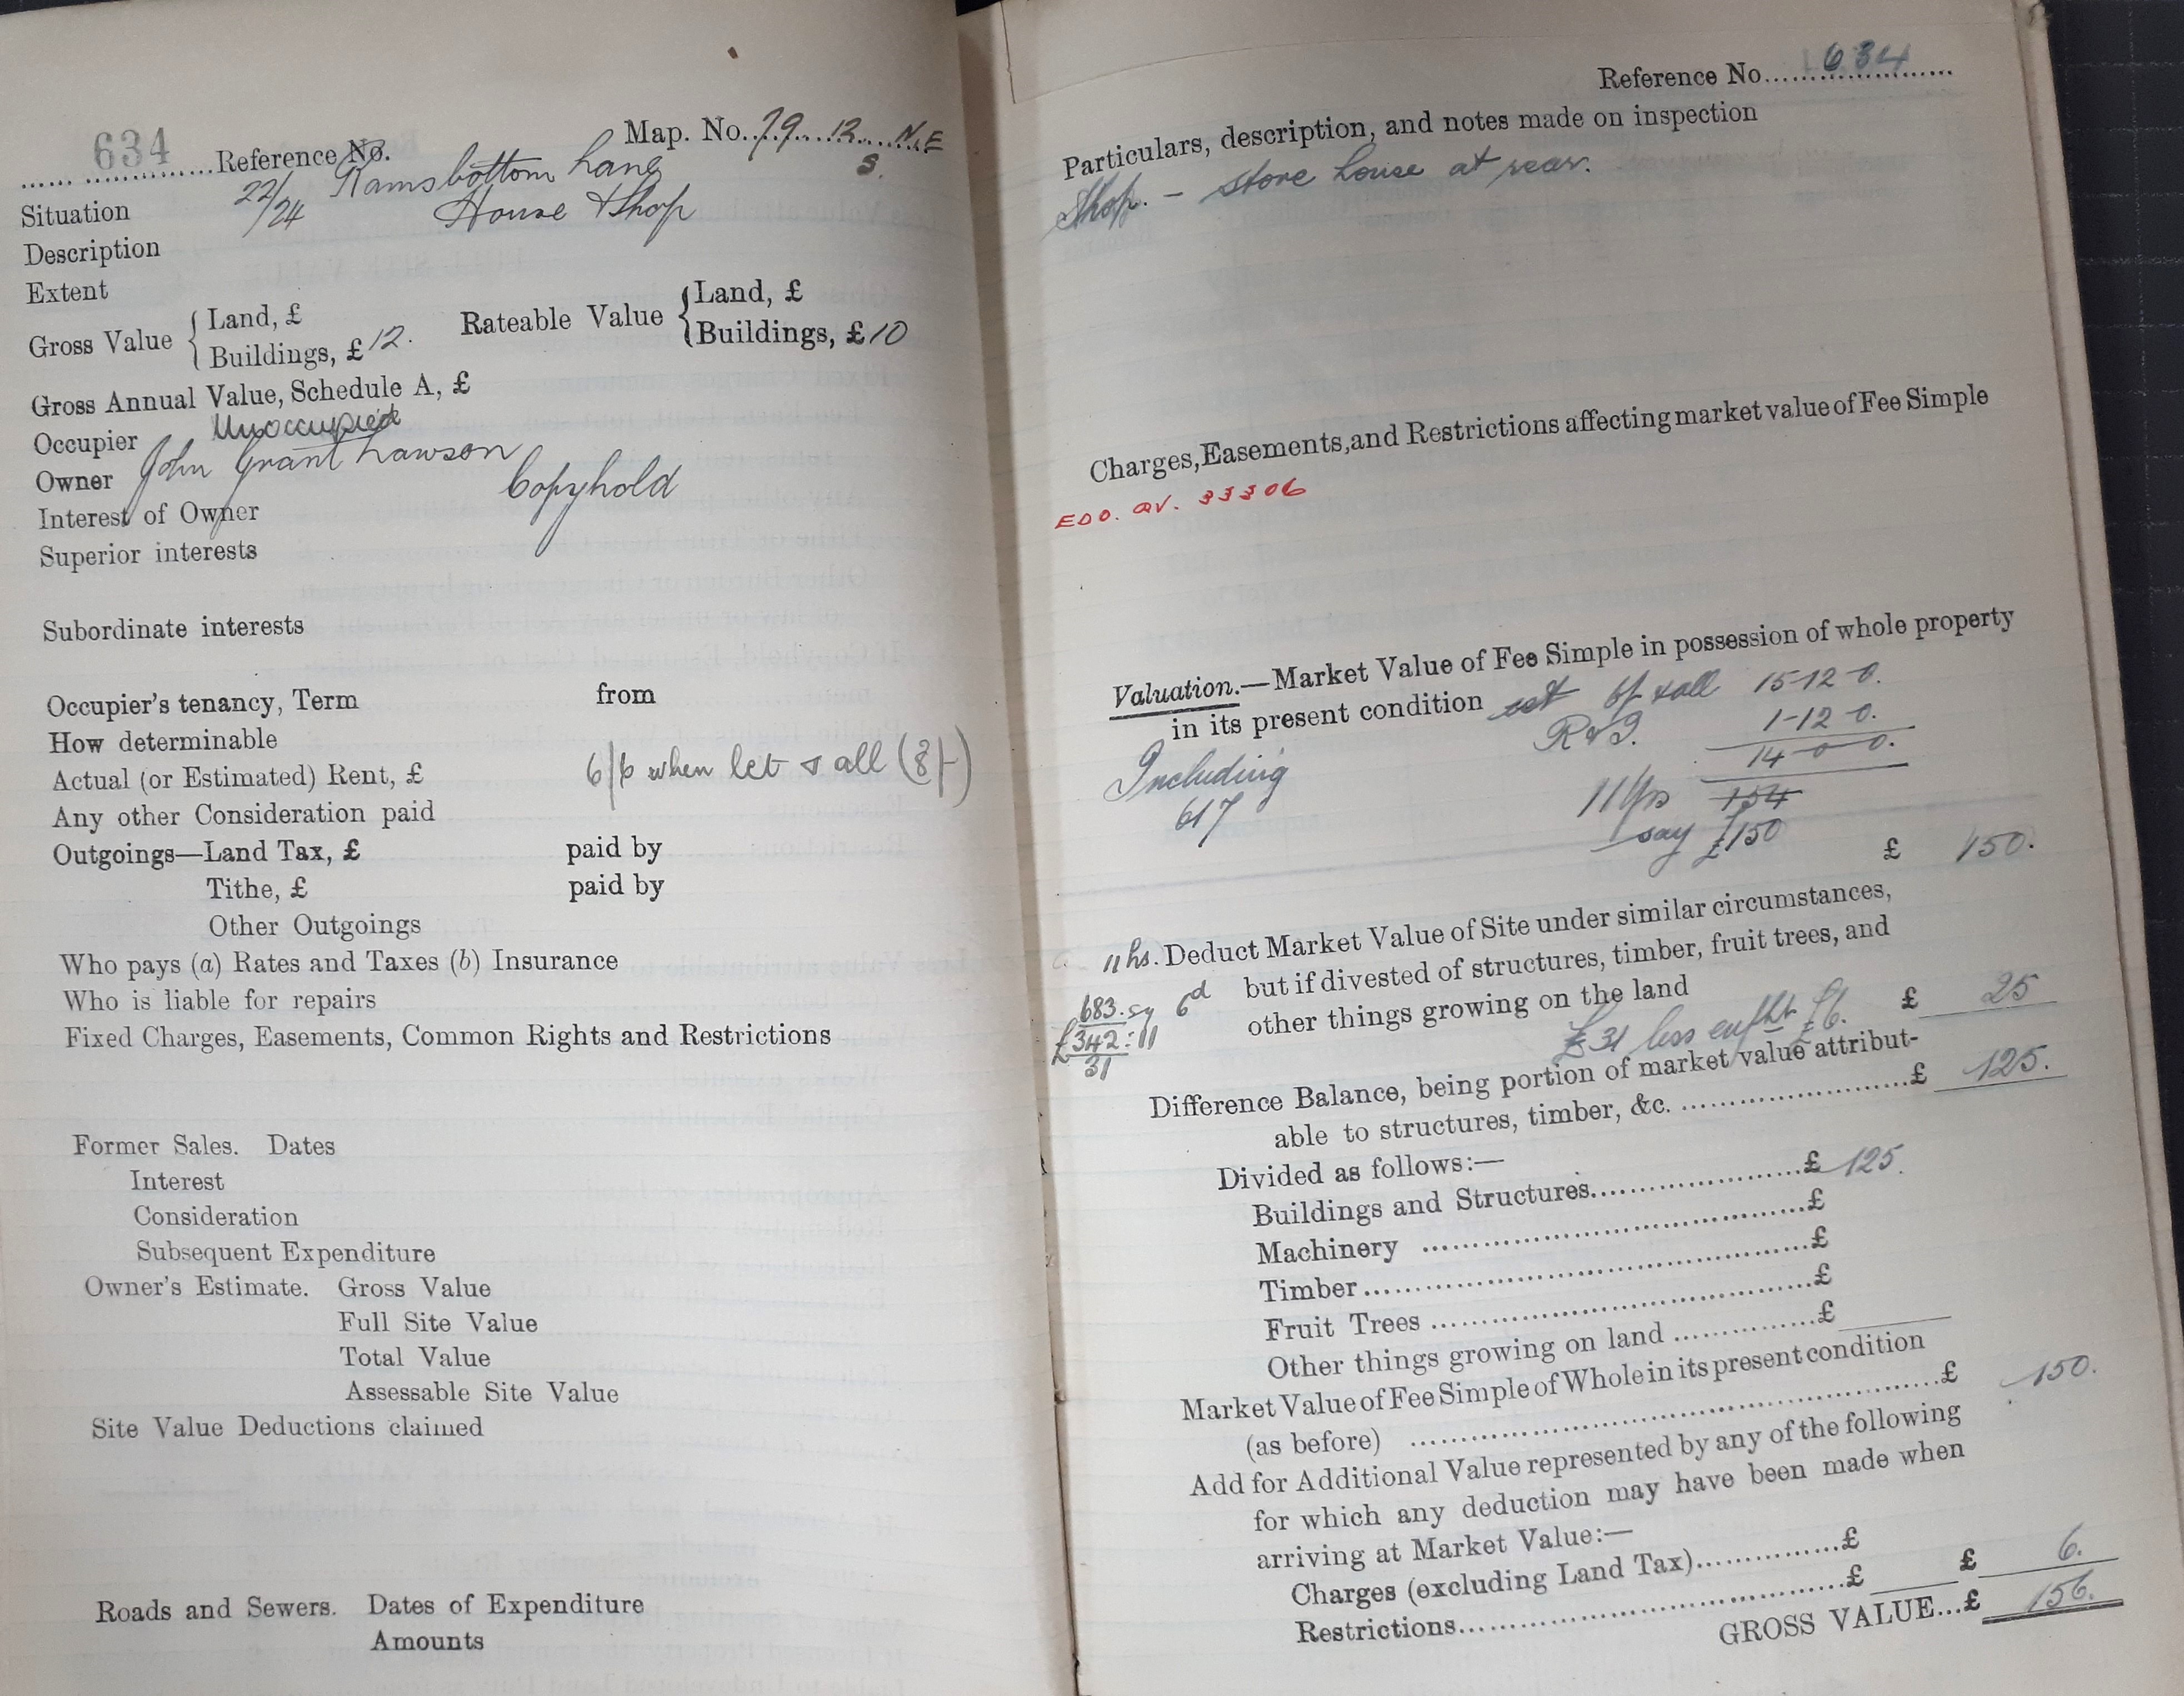 634 Reference No. Map. No. 79. 12. N.E
S.
Situation 22/24 Ramsbottom Lane
Description House & Shop
Extent
Gross Value { Land, £ Rateable Value { Land, £
Buildings, £ 12. Buildings, £ 10
Gross Annual Value, Schedule A, £
Occupier Unoccupied
Owner John Grant Lawson
Interest of Owner Copyhold
Superior interests
Subordinate interests
Occupier's tenancy, Term from
How determinable
Actual (or Estimated) Rent, £ 6/6 when let & all (8/-)
Any other Consideration paid
Outgoings—Land Tax, £ paid by
Tithe, £ paid by
Other Outgoings
Who pays (a) Rates and Taxes (b) Insurance
Who is liable for repairs
Fixed Charges, Easements, Common Rights and Restrictions
Former Sales. Dates
Interest
Consideration
Subsequent Expenditure
Owner's Estimate. Gross Value
Full Site Value
Total Value
Assessable Site Value
Site Value Deductions claimed
Roads and Sewers. Dates of Expenditure
Amounts
Reference No. 634
Particulars, description, and notes made on inspection
Shop. - store house at rear.
Charges, Easements, and Restrictions affecting market value of Fee Simple
EDO. QV. 33306
Valuation.—Market Value of Fee Simple in possession of whole property
in its present condition est 6/- & all 15-12-0.
1-12-0.
14-0-0.
Including 11 Yrs 154
617 say £150
£ 150.
11 hs. Deduct Market Value of Site under similar circumstances,
but if divested of structures, timber, fruit trees, and
683. sq 6d other things growing on the land £ 25
£342:11 £31 less enfht £6.
31
Difference Balance, being portion of market value attribut-
able to structures, timber, &c. £ 125.
Divided as follows:—
Buildings and Structures £ 125.
Machinery £
Timber £
Fruit Trees £
Other things growing on land £
Market Value of Fee Simple of Whole in its present condition
(as before) £ 150.
Add for Additional Value represented by any of the following
for which any deduction may have been made when
arriving at Market Value:—
Charges (excluding Land Tax) £
Restrictions £ £ 6.
GROSS VALUE...£ 156.